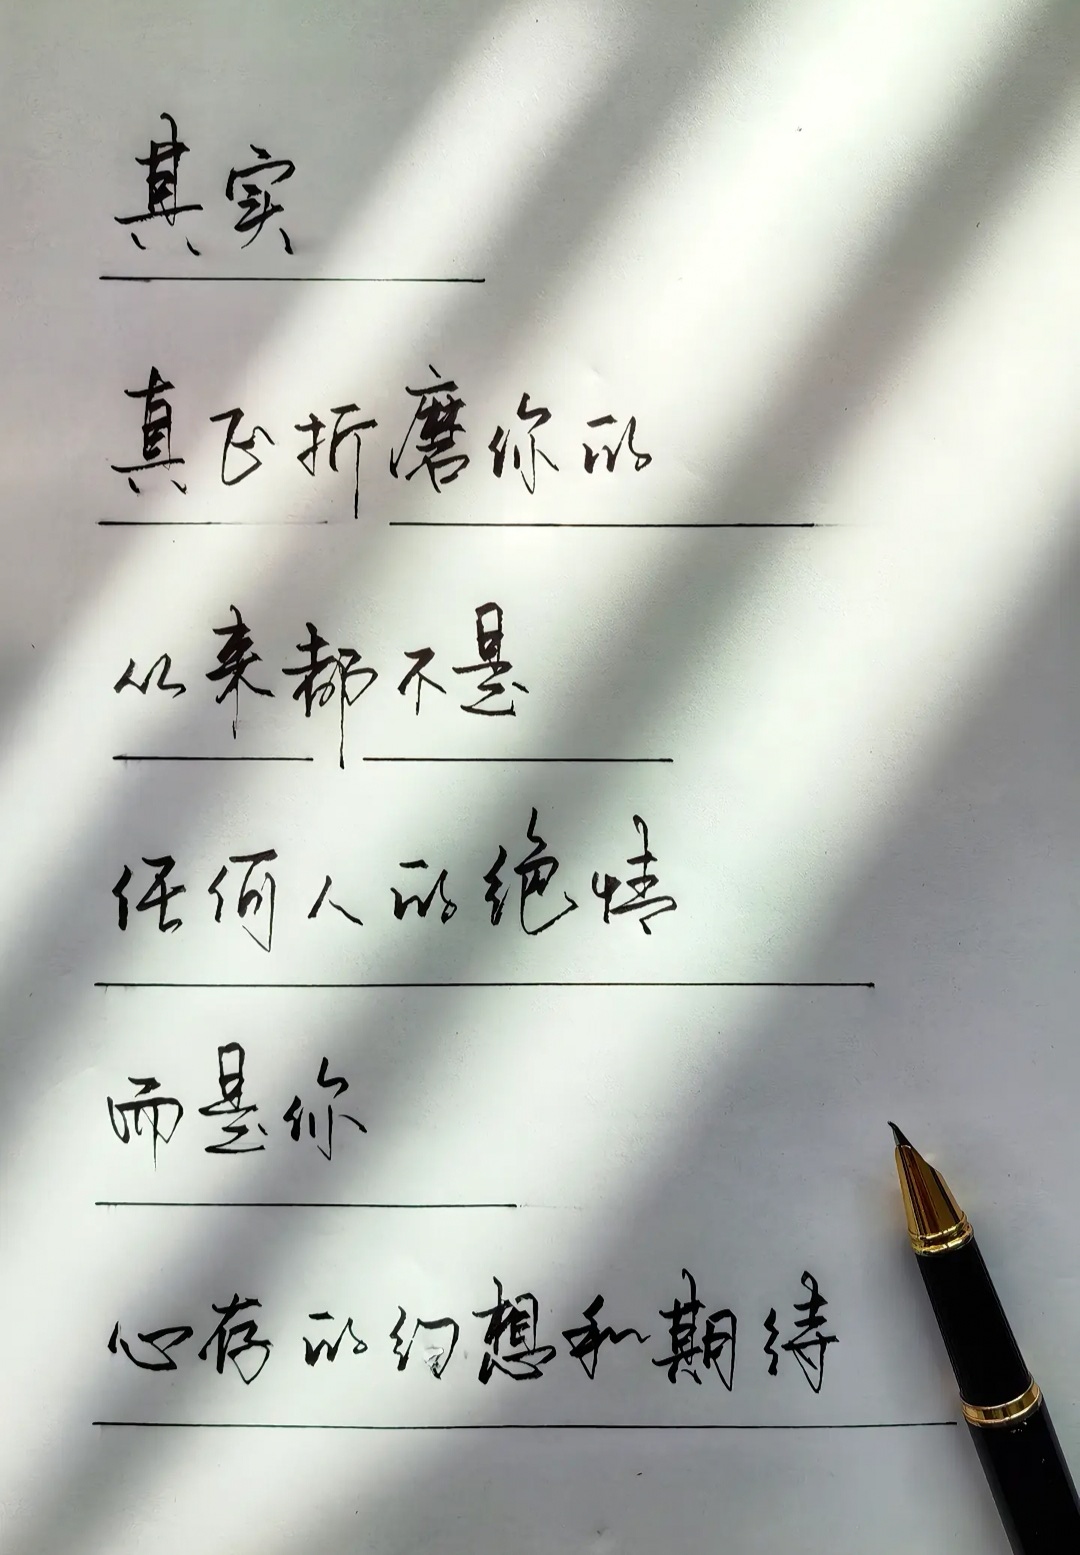 其实
真正折磨你的
从来都不是
任何人的绝情
而是你
心存的幻想和期待